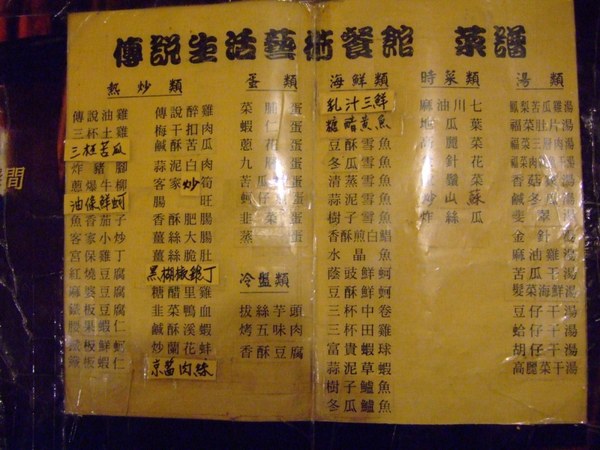 傳說生活藝術餐館 菜譜
熱炒類
傳說油雞
三杯土雞
三杯苦瓜
炸豬腳
煎爆牛柳
油條鮮蚵
魚香茄子
客家小炒
宮保雞丁
紅燒豆腐
麻婆豆腐
鐵板豆腐
腰果蝦仁
鐵板鮮蚵
鐵板蝦仁
傳說醉雞
梅干扣肉
鹹酥苦瓜
蒜泥白肉
客家炒筍
腸旺
香酥肥腸
薑絲大腸
薑絲脆肚
黑胡椒雞丁
糖醋里雞
韭菜鴨血
鹹酥溪蝦
炒蘭花蚌
京醬肉絲
蛋類
菜脯蛋
蝦仁蛋
蔥花蛋
苦瓜蛋
蚵仔蛋
韭菜蛋
蒸蛋
冷盤類
拔絲芋頭
烤五味肉
香酥豆腐
海鮮類
乳汁三鮮
糖醋黃魚
豆酥雪魚
冬瓜雪魚
清蒸雪魚
蒜泥雪魚
樹子雪魚
香酥煎白鯧
水晶魚
蔭豉鮮蚵
豆酥鮮蚵
三杯中卷
三杯田雞
富貴蝦球
蒜泥草蝦
樹子鱸魚
冬瓜鱸魚
時菜類
麻油川七
地瓜葉
高麗菜
金針花
炒山蘇
炸絲瓜
湯類
鳳梨苦瓜雞湯
福菜肚片湯
福菜三層肉湯
香菇雞湯
翡翠湯
金針湯
麻油雞湯
苦瓜干湯
髮菜海鮮湯
豆仔干湯
蛤仔干湯
胡仔干湯
高麗菜干湯
間